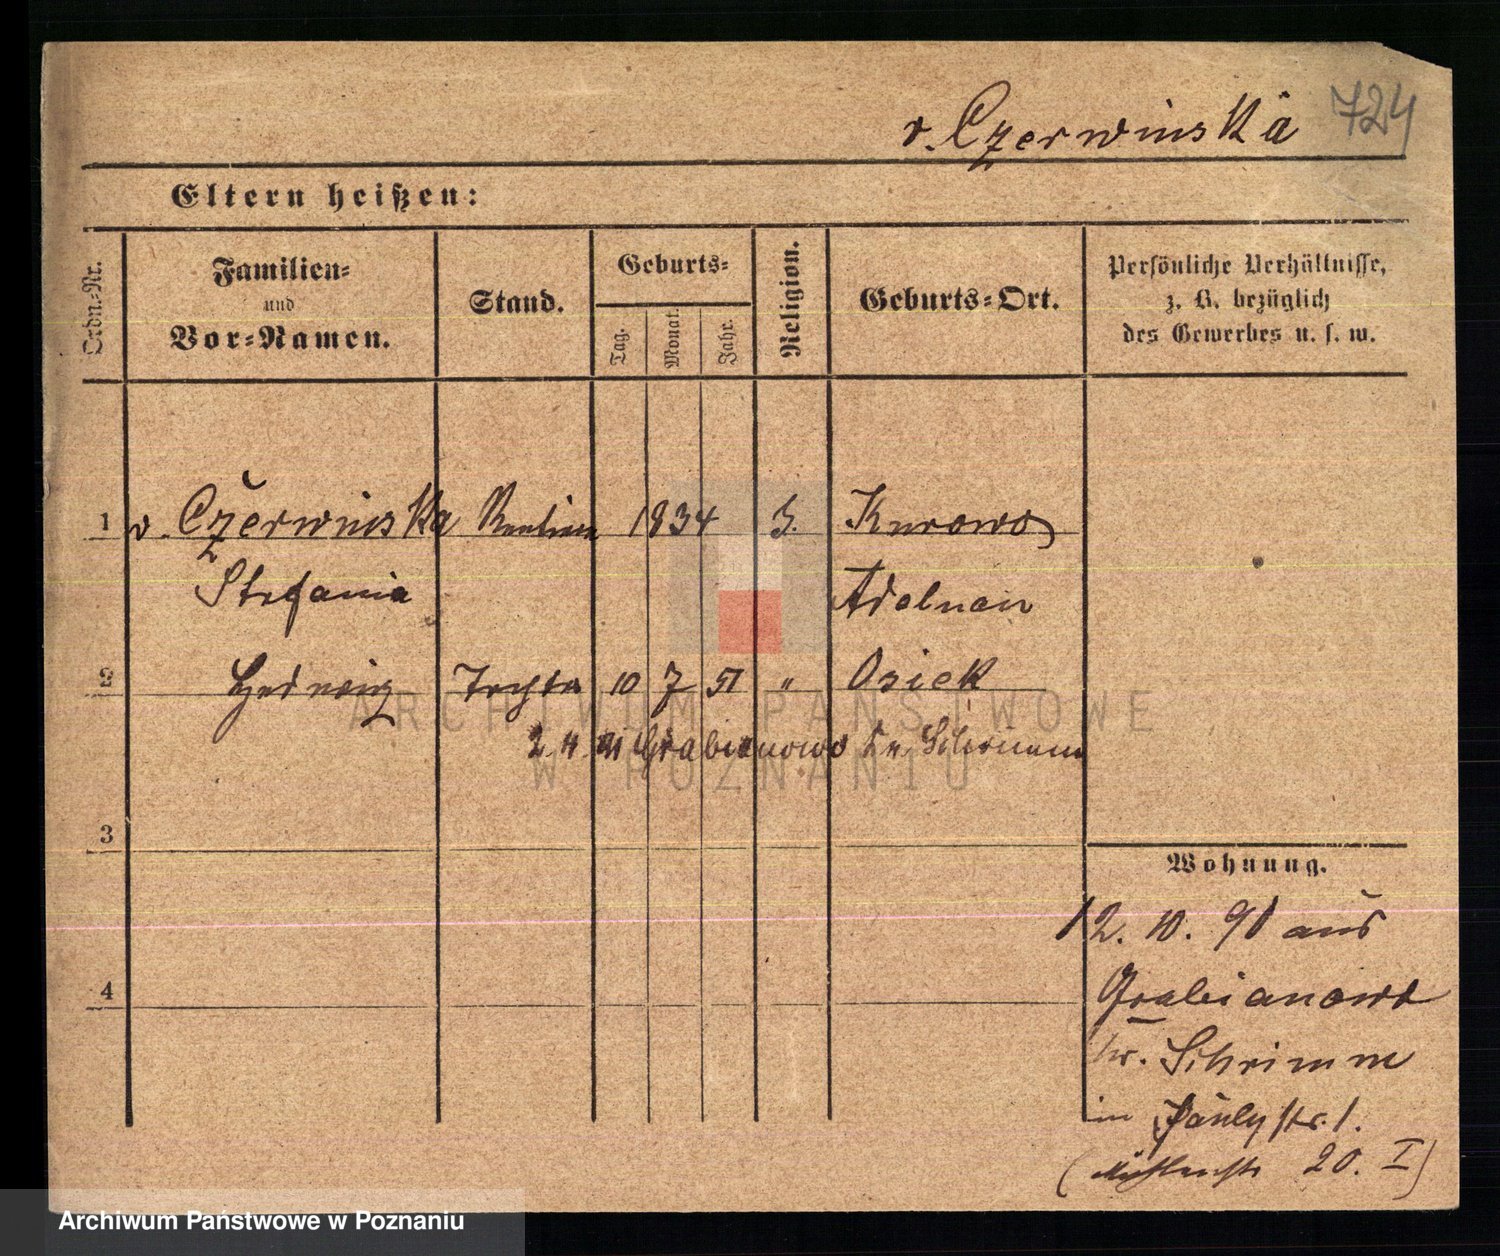 v. Czerwinska 724
Eltern heißen:
Ordn.-Nr.
Familien-
und
Vor-Namen.
Stand.
Geburts-
Tag.
Monat.
Jahr.
Religion.
Geburts-Ort.
Persönliche Verhältnisse,
z. B. bezüglich
des Gewerbes u. s. w.
1 v. Czerwinska 1834 Kurowo
Stefania Adelnau
2 Hedwig Tochter 10 7 51 " Osiek
2.4. Grabianowo Kr. Schrimm
3
Wohnung.
12. 10. 91 aus
4 Grabianowo
Kr. Schrimm
in Paulystr. 1.
(Mühlenstr 20. I)
ARCHIWUM PAŃSTWOWE
W POZNANIU
Archiwum Państwowe w Poznaniu